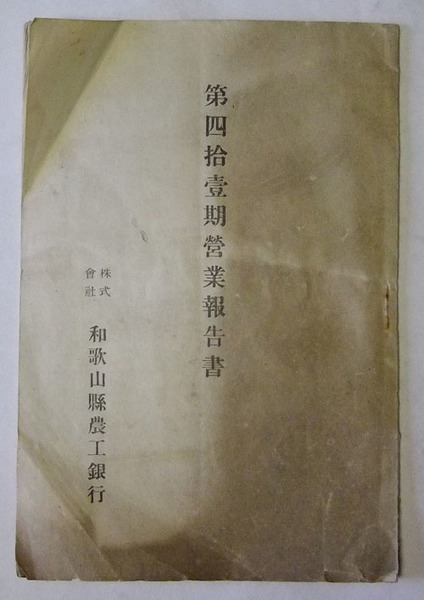 第四拾壹期營業報告書
株式會社
和歌山縣農工銀行